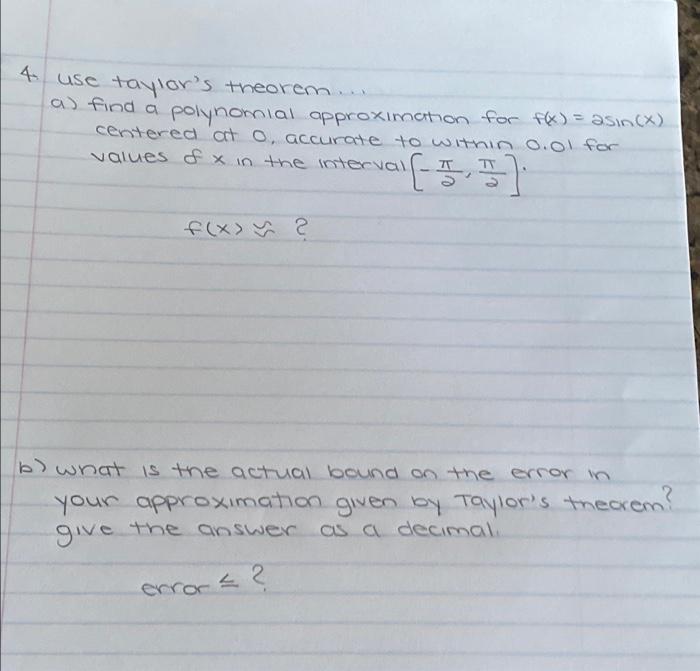 4. use taylor's theorem...
a) find a polynomial approximation for f(x) = 2sin(x)
centered at 0, accurate to within 0.01 for
values of x in the interval [-π/2, π/2].
f(x) ≈ ?
b) what is the actual bound on the error in
your approximation given by Taylor's theorem?
give the answer as a decimal.
error ≤ ?